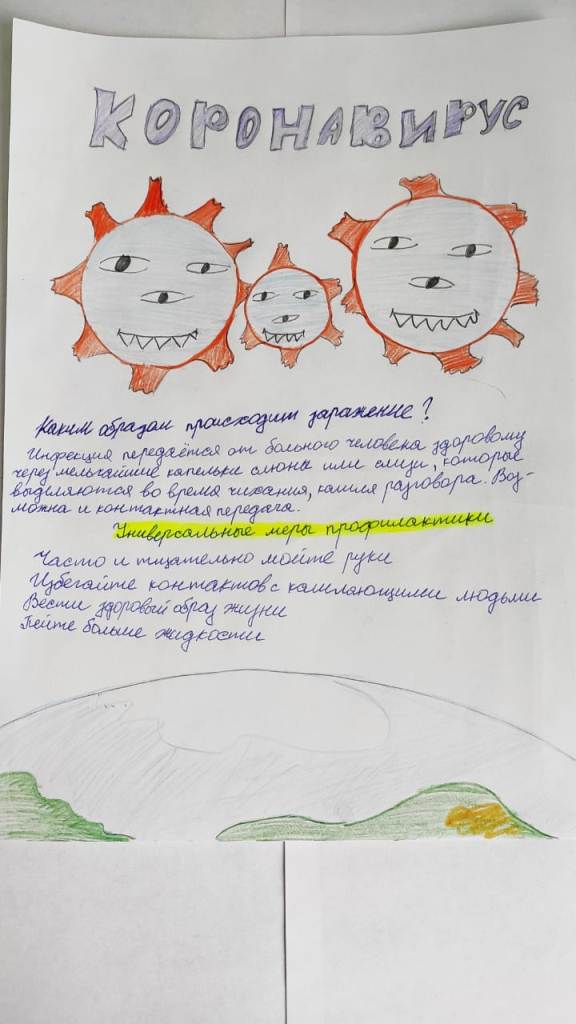 КОРОНАВИРУС
Каким образом происходит заражение?
Инфекция передаётся от больного человека здоровому
через мельчайшие капельки слюны или слизи, которые
выделяются во время чихания, кашля разговора. Воз-
можна и контактная передача.
Универсальные меры профилактики
Часто и тщательно мойте руки
Избегайте контактов с кашляющими людьми
Вести здоровый образ жизни
Пейте больше жидкости